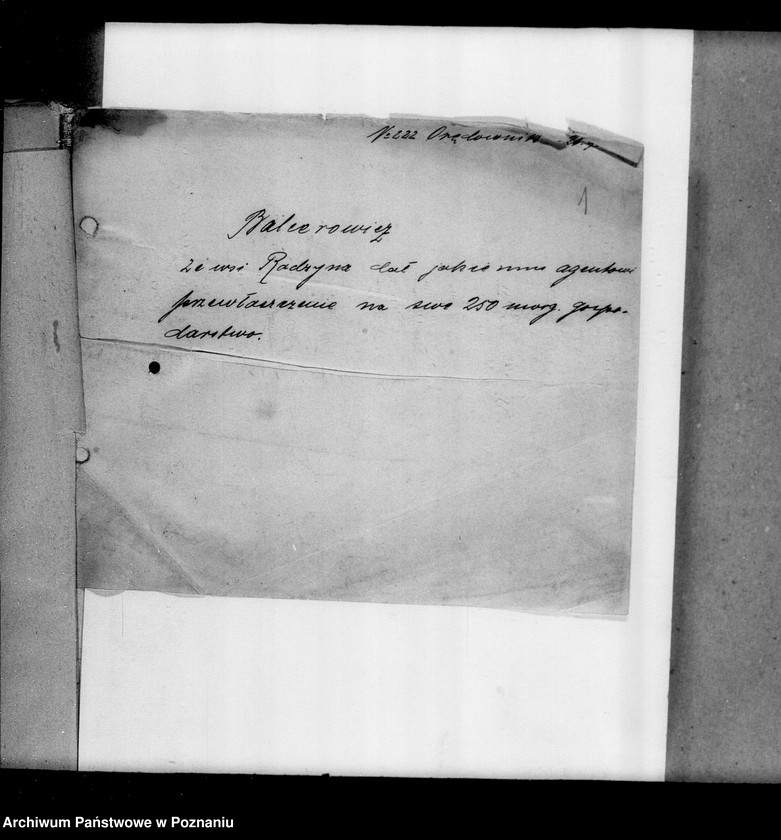 No 222 Orędownik
1
Balcerowicz
ze wsi Radzyna dał jakiemuś agentowi
przewłaszczenie na swe 250 morg. gospo-
darstwo.
Archiwum Państwowe w Poznaniu